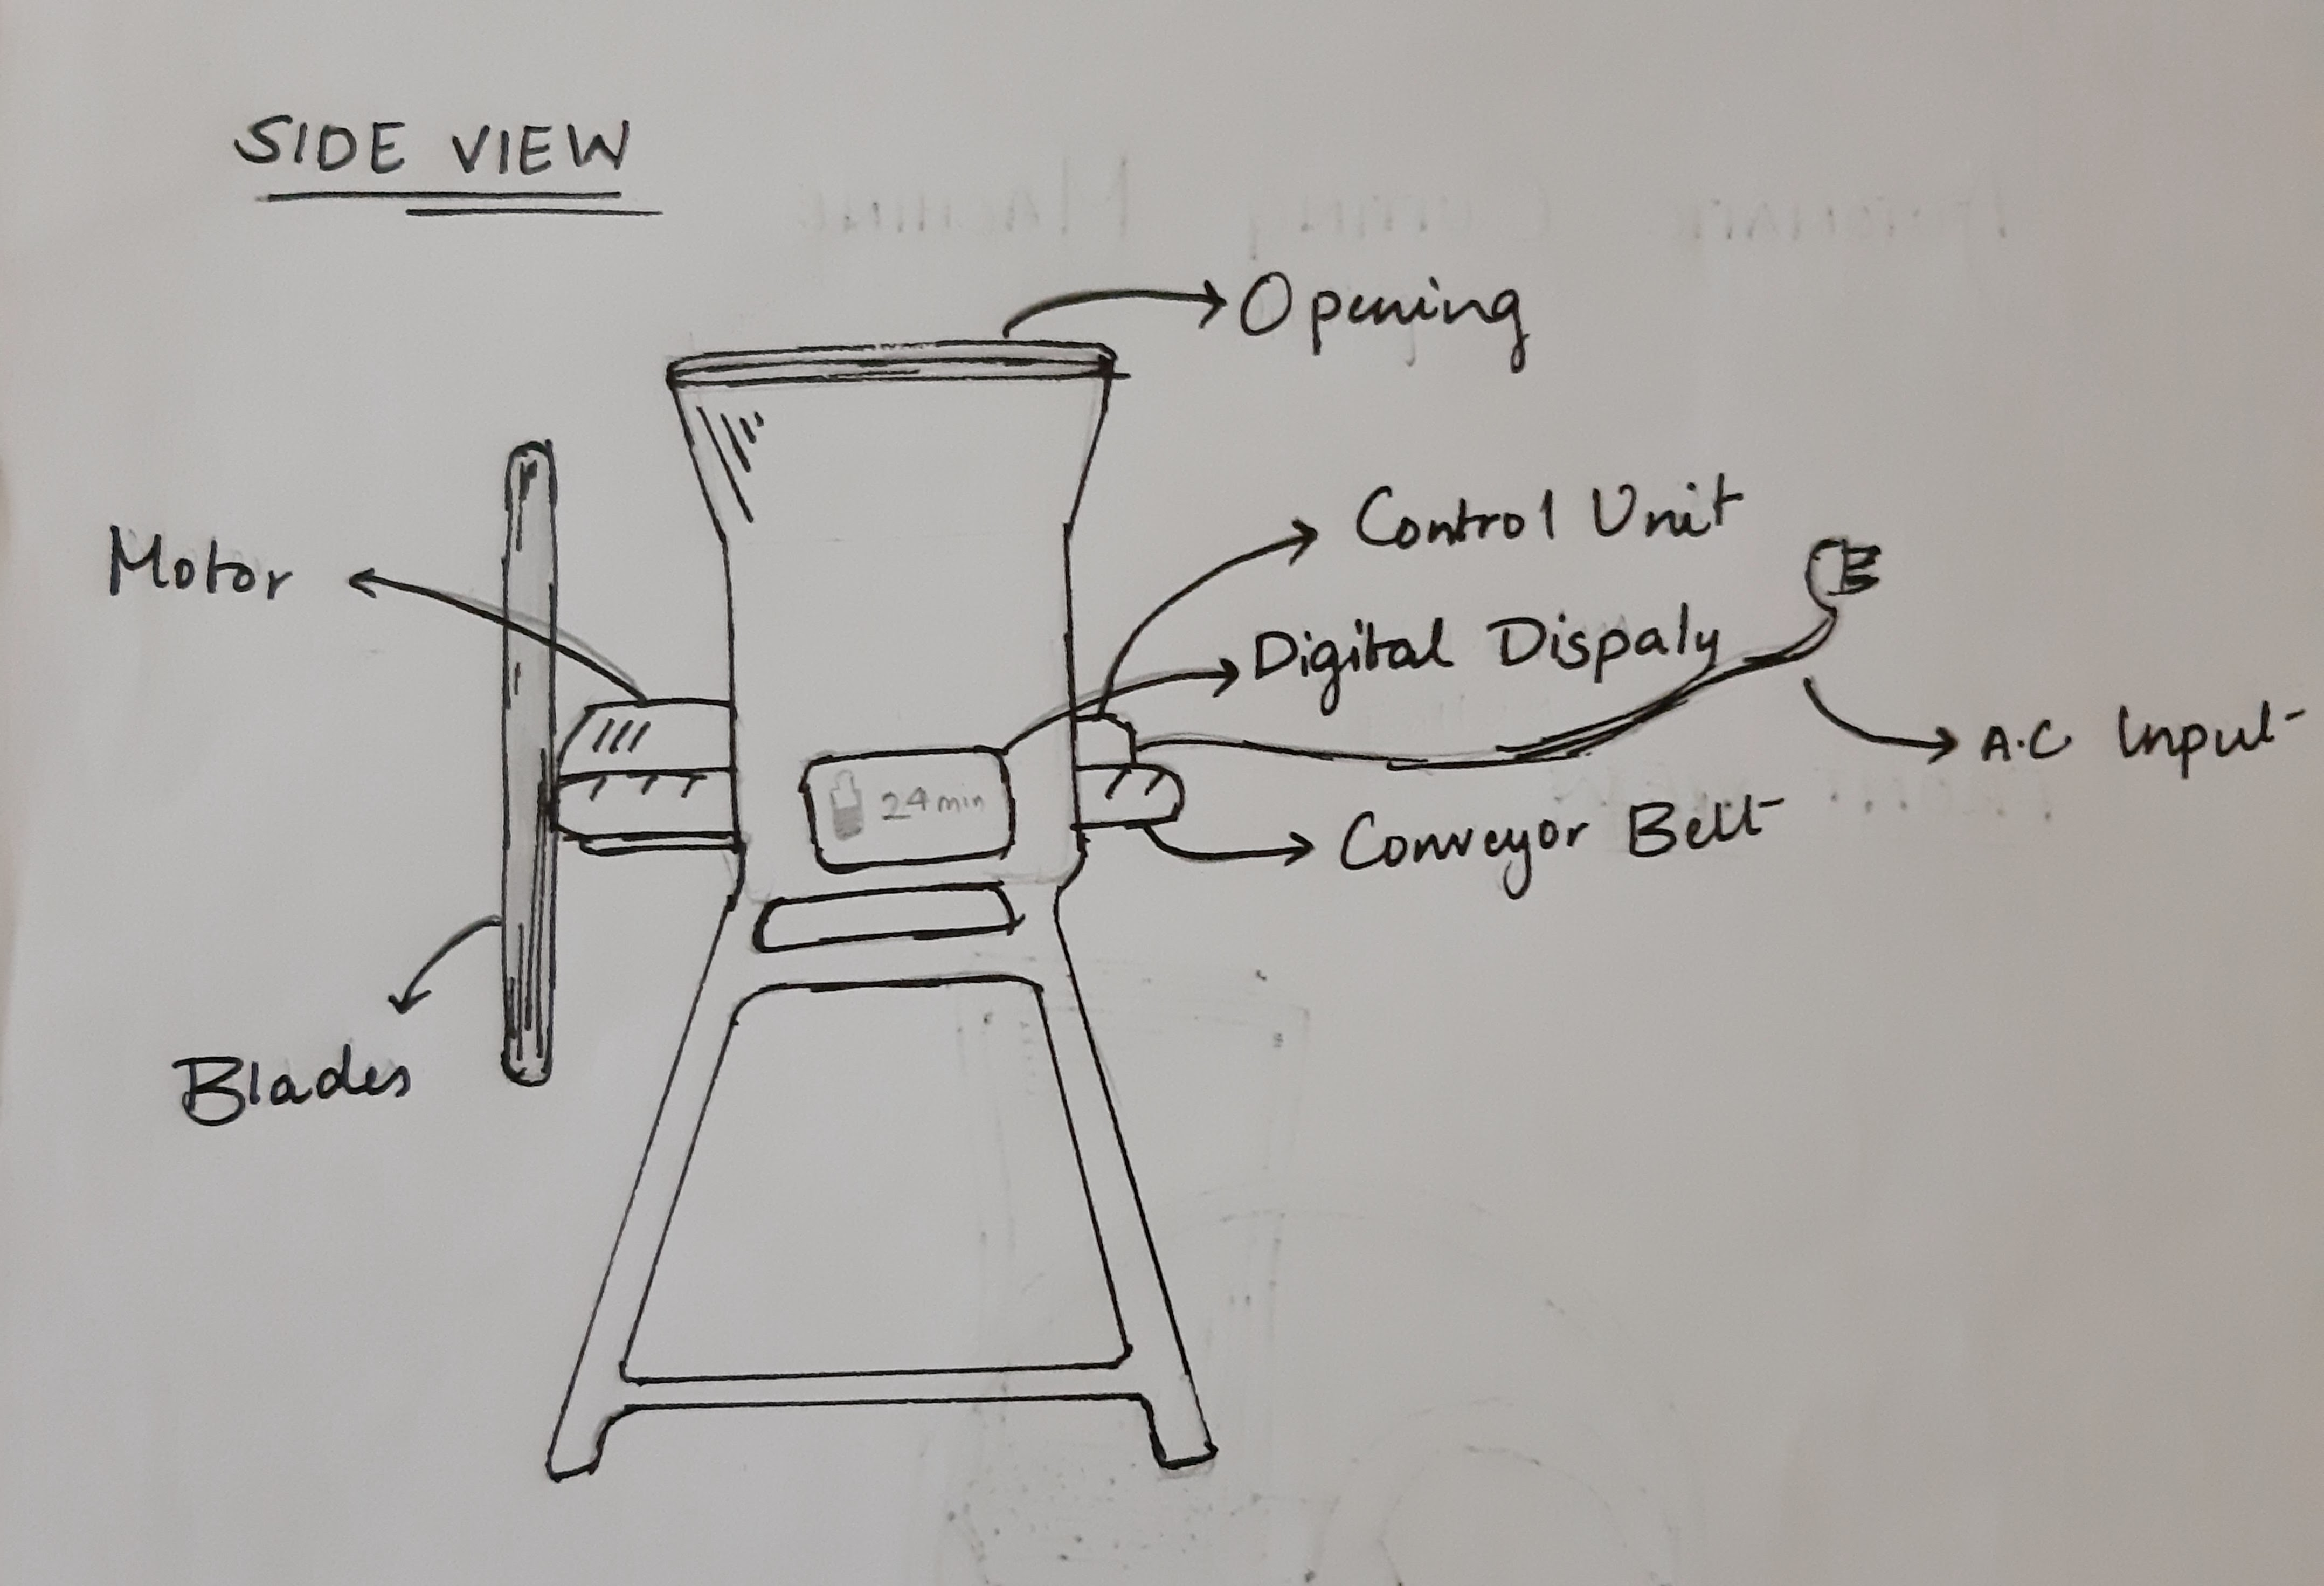 SIDE VIEW
Opening
Control Unit
Motor
Digital Dispaly
A.C Input
24min
Conveyor Belt
Blades